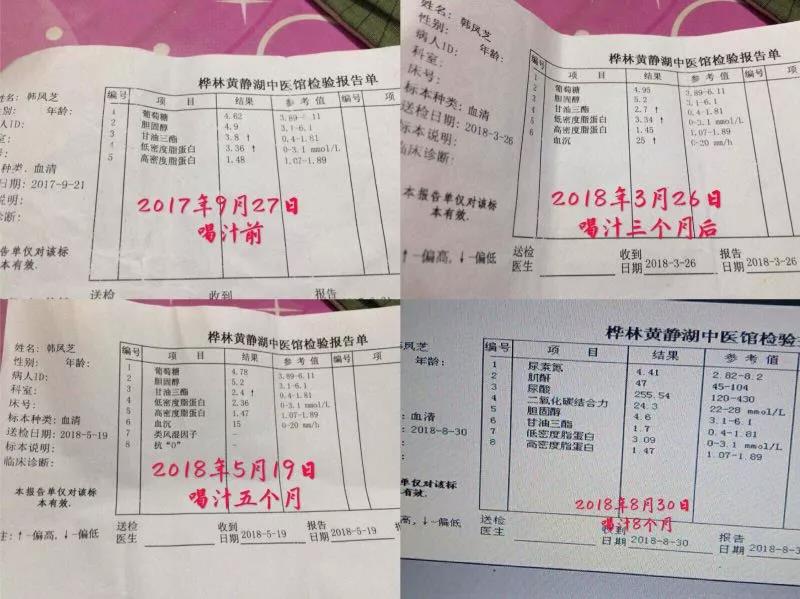 桦林黄静湖中医馆检验报告单
姓名: 韩凤芝
年龄:
人ID:
种类: 血清
日期: 2017-9-21
说明:
诊断:
告单仅对该标
本有效.
编号 项 目 结果 参 考 值 编号 项
1 葡萄糖 4.62 3.89-6.11
2 胆固醇 4.9 3.1-6.1
3 甘油三酯 3.8 ↑ 0.4-1.81
4 低密度脂蛋白 3.36 ↑ 0-3.1 mmol/L
5 高密度脂蛋白 1.48 1.07-1.89
2017年9月27日
喝汁前
送检 收到 报告
桦林黄静湖中医馆检验报告单
姓名: 韩凤芝
性别:
病人ID: 年龄:
科室:
床号:
标本种类: 血清
送检日期: 2018-3-26
标本说明:
临床诊断:
本报告单仅对该标
本有效.
编号 项 目 结果 参 考 值 编号 项
1 葡萄糖 4.95 3.89-6.11
2 胆固醇 5.2 3.1-6.1
3 甘油三酯 2.7 ↑ 0.4-1.81
4 低密度脂蛋白 3.34 ↑ 0-3.1 mmol/L
5 高密度脂蛋白 1.45 1.07-1.89
6 血沉 25 ↑ 0-20 mm/h
2018年3月26日
喝汁三个月后
↑-偏高,↓-偏低
送检 收到 报告
医生 日期 2018-3-26 日期 2018-3-26
桦林黄静湖中医馆检验报告单
姓名: 韩凤芝
性别: 年龄:
病人ID:
科室:
床号:
标本种类: 血清
送检日期: 2018-5-19
标本说明:
临床诊断:
本报告单仅对该标
本有效.
编号 项 目 结果 参 考 值 编号 项
1 葡萄糖 4.78 3.89-6.11
2 胆固醇 5.2 3.1-6.1
3 甘油三酯 2.4 ↑ 0.4-1.81
4 低密度脂蛋白 2.36 0-3.1 mmol/L
5 高密度脂蛋白 1.47 1.07-1.89
6 血沉 15 0-20 mm/h
7 类风湿因子 -
8 抗“O” -
2018年5月19日
喝汁五个月
注: ↑-偏高,↓-偏低
送检 收到 报告
医生 日期 2018-5-19 日期 2018-5-19
桦林黄静湖中医馆检验
韩凤芝
年龄:
血清
2018-8-30
本报告单仅对该标
本有效.
编号 项 目 结果 参 考 值
1 尿素氮 4.41 2.82-8.2
2 肌酐 47 45-104
3 尿酸 255.54 120-430
4 二氧化碳结合力 24.3 22-28 mmol/L
5 胆固醇 4.6 3.1-6.1
6 甘油三酯 1.7 0.4-1.81
7 低密度脂蛋白 3.09 0-3.1 mmol/L
8 高密度脂蛋白 1.47 1.07-1.89
2018年8月30日
喝汁8个月
高,↓-偏低
送检 收到 报告
医生 日期 2018-8-30 日期 2018-8-3